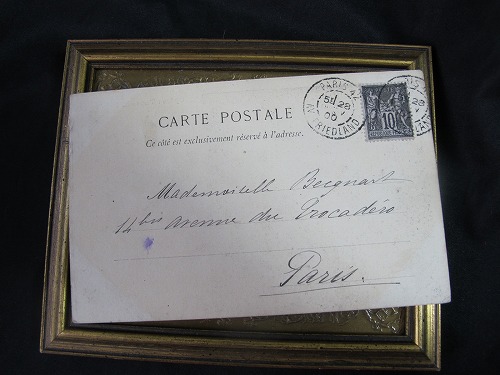 CARTE POSTALE
Ce côté est exclusivement réservé à l'adresse.
PARIS 42
5E 28
00
FRIEDLAND
10
Mademoiselle
14 bis avenue du Trocadéro
Paris.